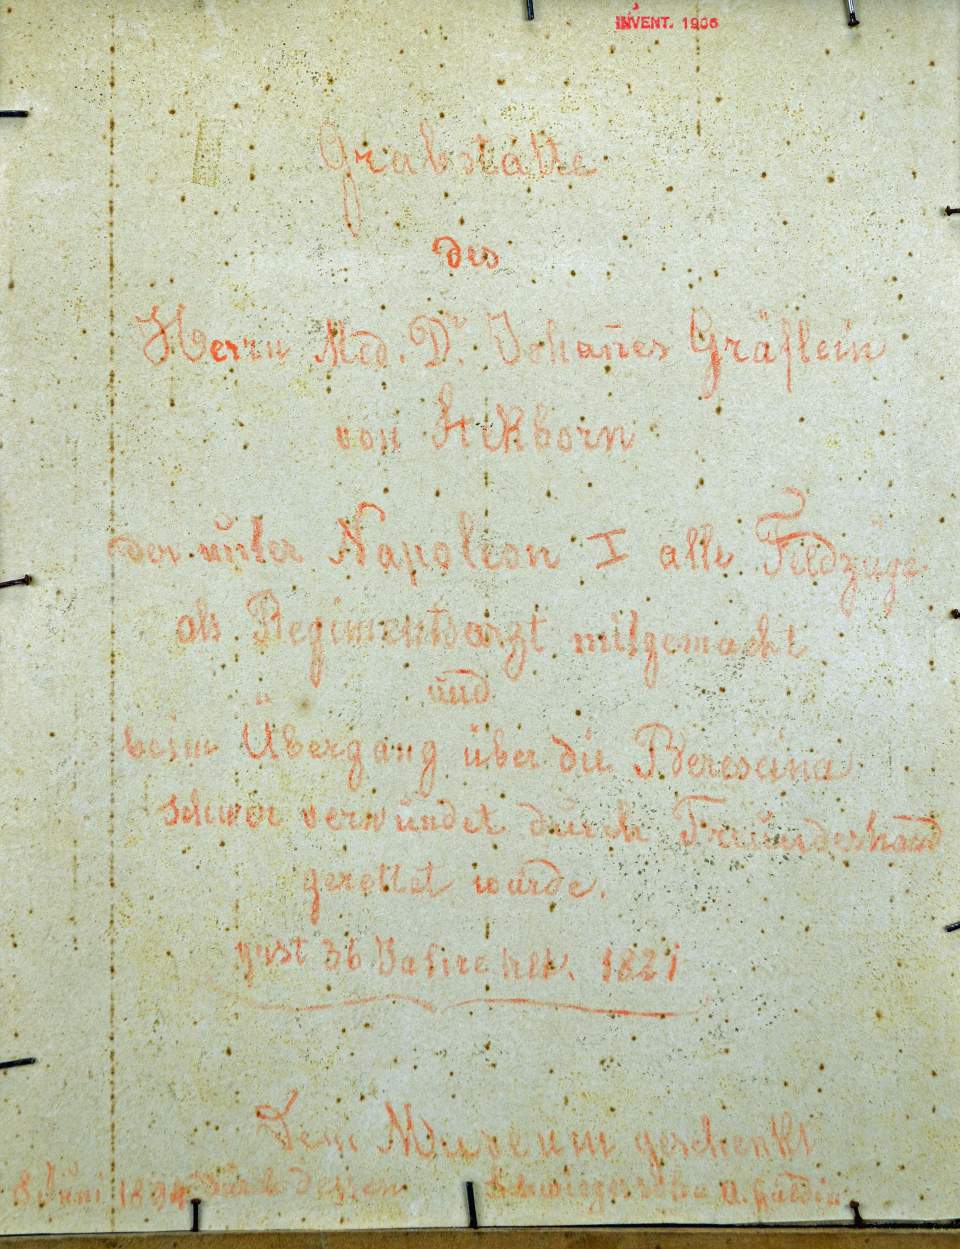 INVENT. 1906
Grabstätte
des
Herrn Med. Dr. Johan̄es Gräflein
von Stekborn
der unter Napoleon I alle Feldzüge
als Regimentsarzt mitgemacht
und
beim Übergang über die Beresina
schwer verwundet durch Freundeshand
gerettet wurde.
36 Jahre alt. 1821
Dem Museum geschenkt
8 Juni 1894 durch dessen Schwiegersohn